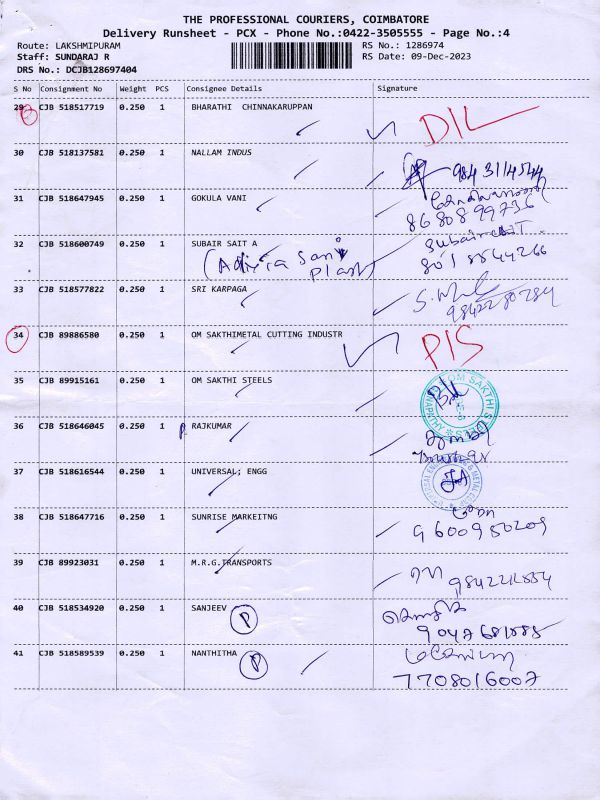 THE PROFESSIONAL COURIERS, COIMBATORE
Delivery Runsheet - PCX - Phone No.:0422-3505555 - Page No.:4
Route: LAKSHMIPURAM RS No.: 1286974
Staff: SUNDARAJ R RS Date: 09-Dec-2023
DRS No.: DCJB128697404
S No Consignment No Weight PCS Consignee Details Signature
29 CJB 518517719 0.250 1 BHARATHI CHINNAKARUPPAN DIL
30 CJB 518137581 0.250 1 NALLAM INDUS
9843114544
31 CJB 518647945 0.250 1 GOKULA VANI
8680899736
32 CJB 518600749 0.250 1 SUBAIR SAIT A
33 CJB 518577822 0.250 1 SRI KARPAGA
34 CJB 89886580 0.250 1 OM SAKTHIMETAL CUTTING INDUSTR PIS
35 CJB 89915161 0.250 1 OM SAKTHI STEELS
OM SAKTHI STEELS
36 CJB 518646045 0.250 1 P. RAJKUMAR
37 CJB 518616544 0.250 1 UNIVERSAL; ENGG
38 CJB 518647716 0.250 1 SUNRISE MARKEITNG
9600950209
39 CJB 89923031 0.250 1 M.R.G.TRANSPORTS
40 CJB 518534920 0.250 1 SANJEEV P
41 CJB 518589539 0.250 1 NANTHITHA P
7708016007